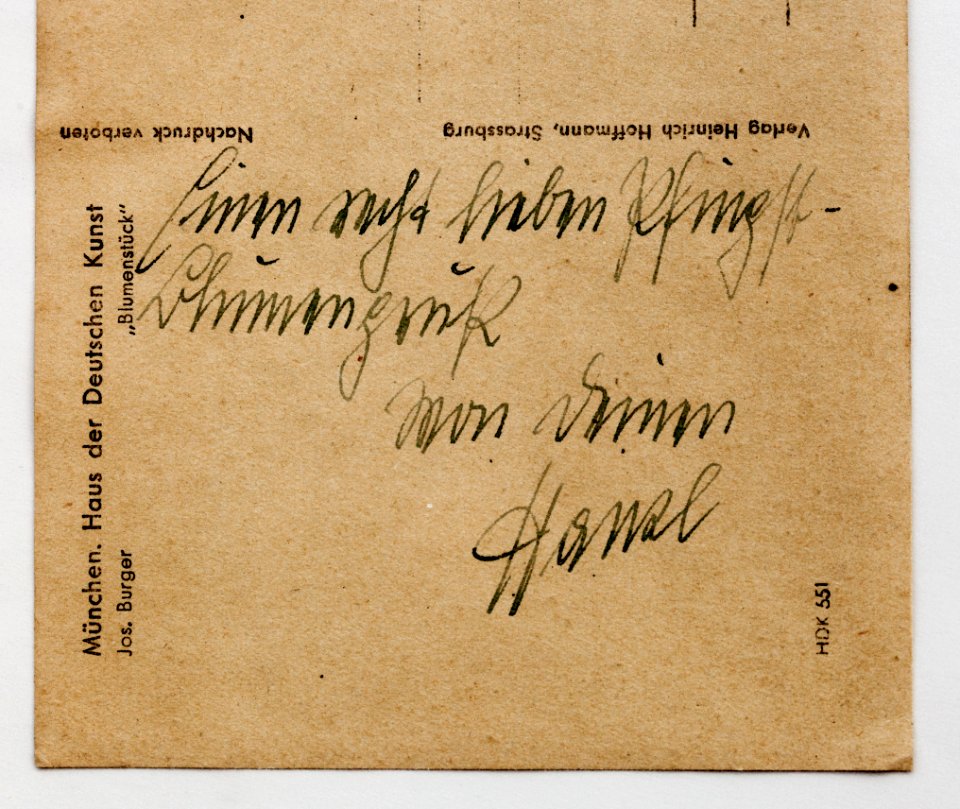 Nachdruck verboten
Verlag Heinrich Hoffmann, Strassburg
Einen recht lieben Pfingst-
Blumengruß
von Deinen
Hansl
München. Haus der Deutschen Kunst
Jos. Burger „Blumenstück“
HDK 551